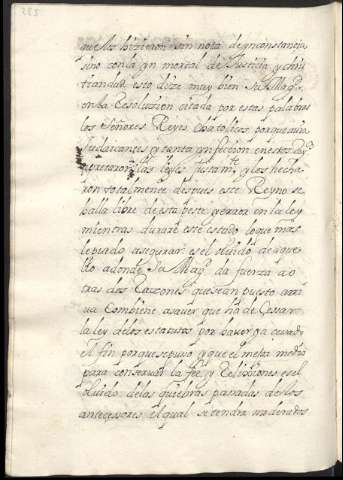 285
que los hizieron sin nota de ynconstancia
sino con la gn mortal de Justicia y chri
tiandad esto dize muy bien Su Magd
en la Resolucion citada por estas palabras
los señores Reyes Catholicos porque auia
Judaiçantes y tanta ynfeccion en estos Rs
apretaron las leyes Justamte y los hecha
ron totalmente despues este Reyno se
halla libre de esta peste y error en la ley
mientras durare este estado lo que mas
le puede asegurar es el oluido de aque
llo adonde Su Magd da fuerza a o
tras dos Razones que sean puesto arri
ua Combiene a sauer que ha de Cessar
la ley de los estatutos por hauer ya cesado
el fin porque se puso y que el mejor medio
para conseruar la fee y Relixion es el
oluido de las quiebras passadas de los
antecessores, el qual se tendra moderados